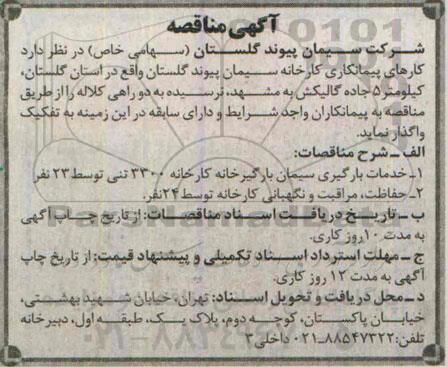 آگهی مناقصه
شرکت سیمان پیوند گلستان (سهامی خاص) در نظر دارد
کارهای پیمانکاری کارخانه سیمان پیوند گلستان واقع در استان گلستان،
کیلومتر ۵ جاده گالیکش به مشهد، نرسیده به دو راهی کلاله را از طریق
مناقصه به پیمانکاران واجد شرایط و دارای سابقه در این زمینه به تفکیک
واگذار نماید.
الف ـ شرح مناقصات:
۱ـ خدمات بارگیری سیمان بارگیرخانه کارخانه ۳۳۰۰ تنی توسط ۲۳ نفر
۲ـ حفاظت، مراقبت و نگهبانی کارخانه توسط ۲۴نفر.
ب ـ تاریخ دریافت اسناد مناقصات: از تاریخ چاپ آگهی
به مدت ۱۰ روز کاری.
ج ـ مهلت استرداد اسناد تکمیلی و پیشنهاد قیمت: از تاریخ چاپ
آگهی به مدت ۱۲ روز کاری.
د ـ محل دریافت و تحویل اسناد: تهران، خیابان شهید بهشتی،
خیابان پاکستان، کوچه دوم، پلاک یک، طبقه اول، دبیرخانه
تلفن: ۸۸۵۴۷۳۲۲ـ۰۲۱ داخلی ۳